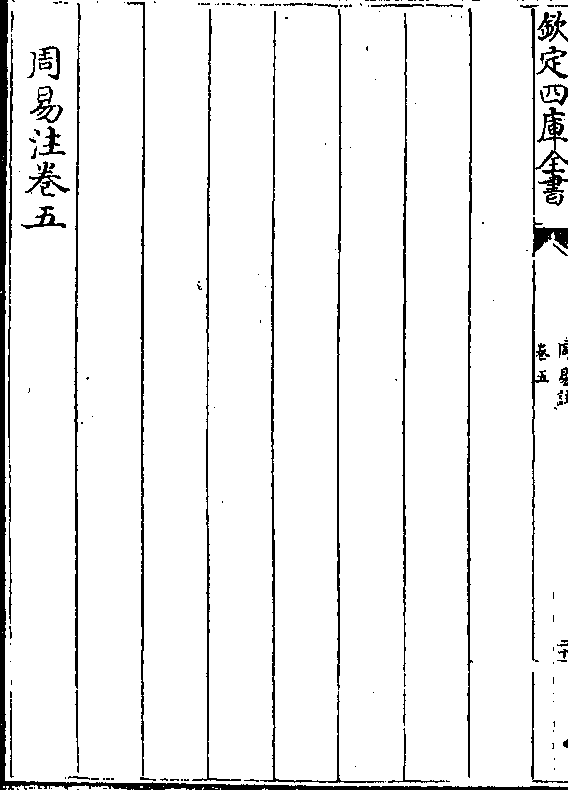 欽定四庫全書
周易註
卷五
周易注卷五